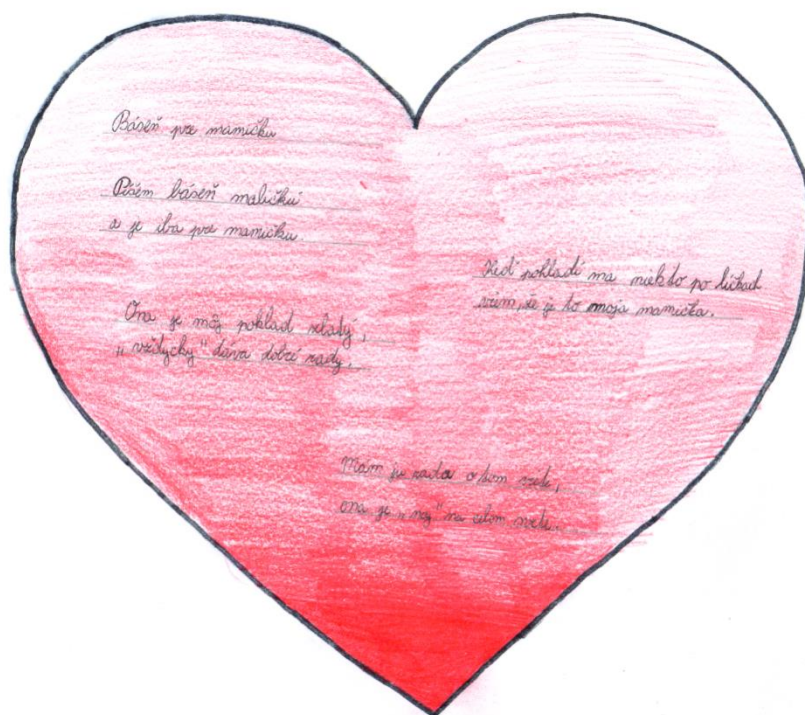 Báseň pre mamičku
Píšem báseň maličkú
a je iba pre mamičku.
Ona je môj poklad zlatý,
"vždycky" dáva dobré rady.
Keď pohladí ma niekto po líčkach
viem, že je to moja mamička.
Mám ju rada o tom viete,
ona je "naj" na celom svete.